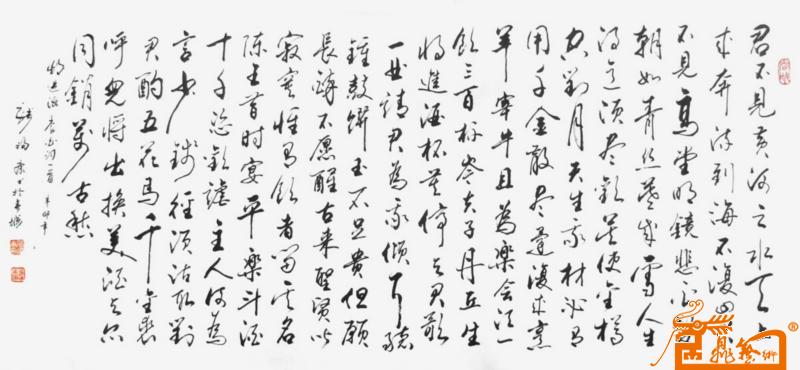 君不見黃河之水天上
来奔流到海不復回
不見高堂明鏡悲白
朝如青丝暮成雪人生
得意须尽歡莫使金樽
空對月天生我材必有
用千金散尽還復来烹
羊宰牛且為樂会须一
飲三百杯岑夫子丹丘生
将進酒杯莫停与君歌
一曲請君為我傾耳聽
鐘鼓饌玉不足貴但願
長醉不愿醒古来聖賢皆
寂寞惟有飲者留其名
陈王昔时宴平樂斗酒
十千恣歡謔主人何為
言少錢徑须沽取對
君酌五花馬千金裘
呼兒将出換美酒与尔
同銷萬古愁
将進酒李白詞一首 辛卯年
藝術